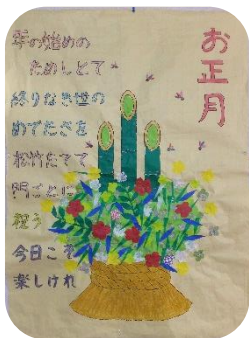 お正月
年の始めの
ためしとて
終りなき世の
めでたさを
松竹たてて
門ごとに
祝う
今日こそ
楽しけれ